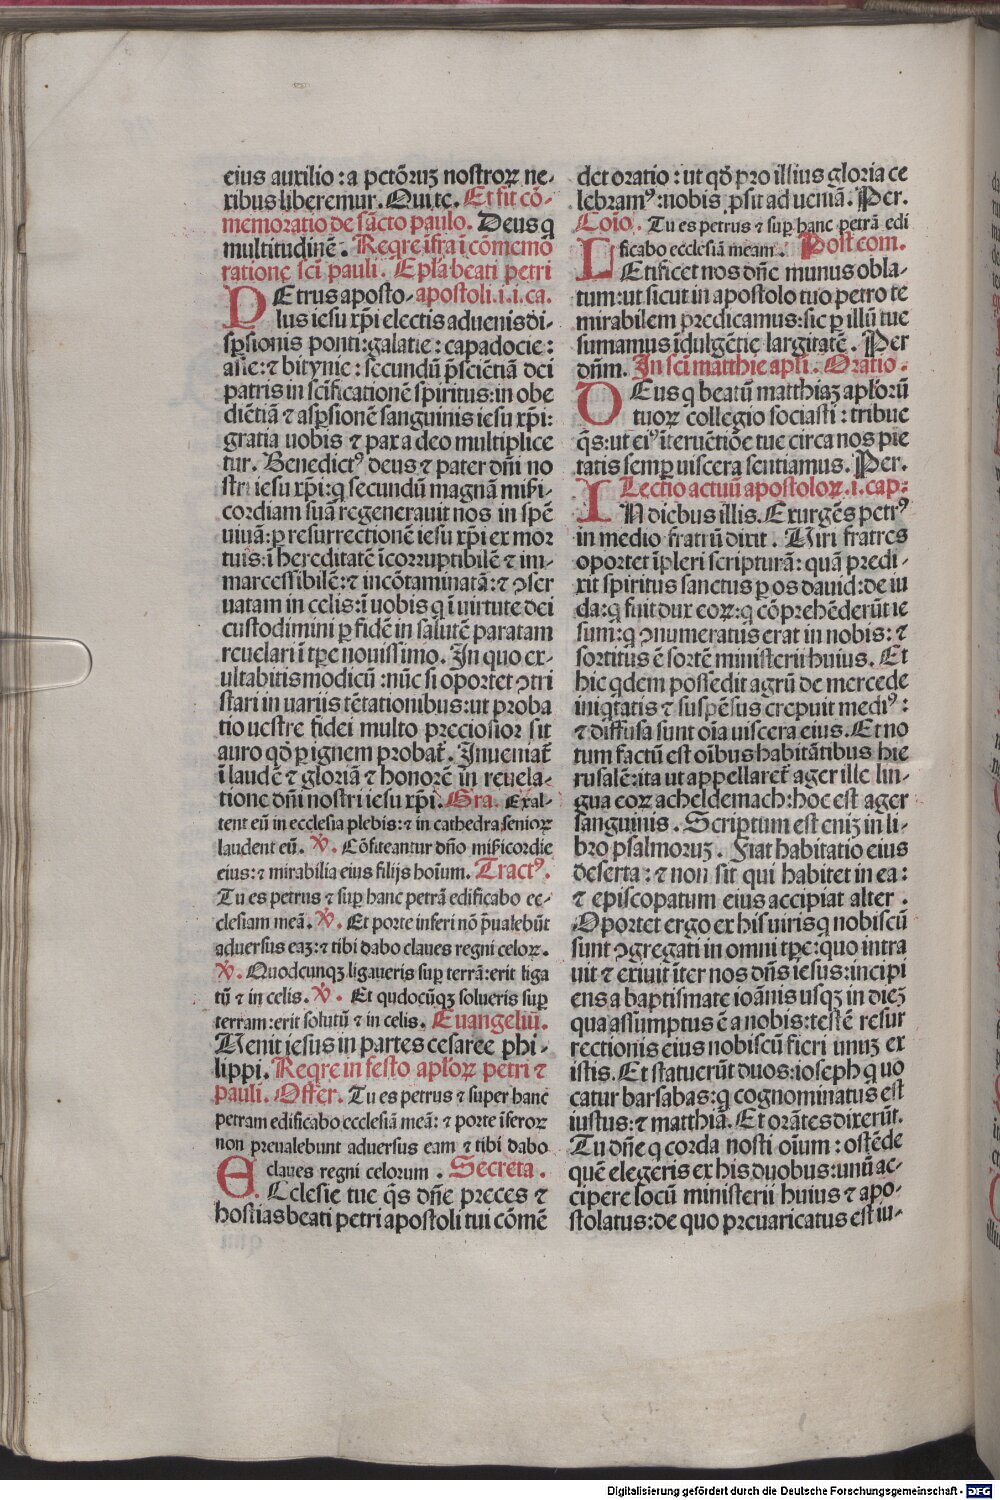 eius auxilio: a pctõruꝫ nostroꝝ ne-
xibus liberemur. Qui tc. Et fit cõ-
memoratio de sãcto paulo. Deus q
multitudinẽ. Reqre ĩfra ĩ cõmemo
ratione sci pauli. Epl'a beati petri
PEtrus aposto- apostoli. i. i. ca.
lus iesu xp̃i electis aduenis di-
sp̱sionis ponti: galatie: capadocie:
asie: ⁊ bitynie: secundũ p̃sciẽtiã dei
patris in scĩficationẽ spiritus: in obe
diẽtiã ⁊ asp̱sionẽ sanguinis iesu xp̃i:
gratia uobis ⁊ pax a deo multiplice
tur. Benedictꝰ deus ⁊ pater dñi no
stri iesu xp̃i: q secundũ magnã misi-
cordiam suã regenerauit nos in spẽ
uiuã: ꝑ resurrectionẽ iesu xp̃i ex mor
tuis: ĩ hereditatẽ ĩcorruptibilẽ ⁊ im-
marcessibilẽ: ⁊ incõtaminatã: ⁊ ꝯser
uatam in celis: ĩ uobis q ĩ uirtute dei
custodimini ꝑ fidẽ in salutẽ paratam
reuelari ĩ tp̃e nouissimo. In quo ex-
ultabitis modicũ: nũc si oportet ꝯtri
stari in uariis tẽtationibus: ut proba
tio uestre fidei multo preciosior sit
auro qõ ꝑ ignem probat̃. Inueniat̃
ĩ laudẽ ⁊ gloriã ⁊ honorẽ in reuela-
tione dñi nostri iesu xp̃i. Gra. Exal-
tent eũ in ecclesia plebis: ⁊ in cathedra senioꝝ
laudent eũ. ℣. Cõfiteantur dño misicordie
eius: ⁊ mirabilia eius filijs hoĩum. Tractꝰ.
Tu es petrus ⁊ suꝑ hanc petrã edificabo ec-
clesiam meã. ℣. Et porte inferi nõ p̃ualebũt
aduersus eaꝫ: ⁊ tibi dabo claues regni celoꝝ.
℣. Quodcunqꝫ ligaueris suꝑ terrã: erit liga
tũ ⁊ in celis. ℣. Et qudocũqꝫ solueris suꝑ
terram: erit solutũ ⁊ in celis. Euangeliũ.
Uenit iesus in partes cesaree phi-
lippi. Reqre in festo apl'oꝝ petri ⁊
pauli. Offer. Tu es petrus ⁊ super hanc
petram edificabo ecclesiã meã: ⁊ porte ĩferoꝝ
non preualebunt aduersus eam ⁊ tibi dabo
claues regni celorum. Secreta.
ECclesie tue q̃s dñe preces ⁊
hostias beati petri apostoli tui cõmẽ
det oratio: ut qõ pro illius gloria ce
lebramꝰ: nobis ꝓsit ad ueniã. Per.
Coĩo. Tu es petrus ⁊ suꝑ hanc petrã edi
ficabo ecclesiã meam. Post com.
LEtificet nos dñe munus obla-
tum: ut sicut in apostolo tuo petro te
mirabilem predicamus: sic ꝑ illũ tue
sumamus ĩdulgẽtie largitatẽ. Per
dñm. In sci matthie apl'i. Oratio.
DEus q beatũ matthiaꝫ apl'orũ
tuoꝝ collegio sociasti: tribue
q̃s: ut eiꝰ ĩteruẽtiõe tue circa nos pie
tatis semꝑ uiscera sentiamus. Per.
Lectio actuũ apostoloꝝ. i. cap:
IN diebus illis. Exurgẽs petrꝰ
in medio fratrũ dixit. Uiri fratres
oportet ĩpleri scripturã: quã predi-
xit spiritus sanctus ꝑ os dauid: de iu
da: q fuit dux eoꝝ: q cõprehẽderũt ie
sum: q ꝯnumeratus erat in nobis: ⁊
sortitus ẽ sortẽ ministerii huius. Et
hic qdem possedit agrũ de mercede
iniqtatis ⁊ suspẽsus crepuit mediꝰ:
⁊ diffusa sunt oĩa uiscera eius. Et no
tum factũ est oĩbus habitãtibus hie
rusalẽ: ita ut appellaret̃ ager ille lin-
gua eoꝝ acheldemach: hoc est ager
sanguinis. Scriptum est eniꝫ in li-
bro psalmoruꝫ. Fiat habitatio eius
deserta: ⁊ non sit qui habitet in ea:
⁊ episcopatum eius accipiat alter.
Oportet ergo ex his uiris q nobiscũ
sunt ꝯgregati in omni tp̃e: quo intra
uit ⁊ exiuit ĩter nos dñs iesus: incipi
ens a baptismate ioãnis usqꝫ in dieꝫ
qua assumptus ẽ a nobis: testẽ resur
rectionis eius nobiscũ fieri unuꝫ ex
istis. Et statuerũt duos: ioseph q uo
catur barsabas: q cognominatus est
iustus: ⁊ matthiã. Et orãtes dixerũt.
Tu dñe q corda nosti oĩum: ostẽde
quẽ elegeris ex his duobus: unũ ac-
cipere locũ ministerii huius ⁊ apo-
stolatus: de quo preuaricatus est iu-
Digitalisierung gefördert durch die Deutsche Forschungsgemeinschaft - DFG